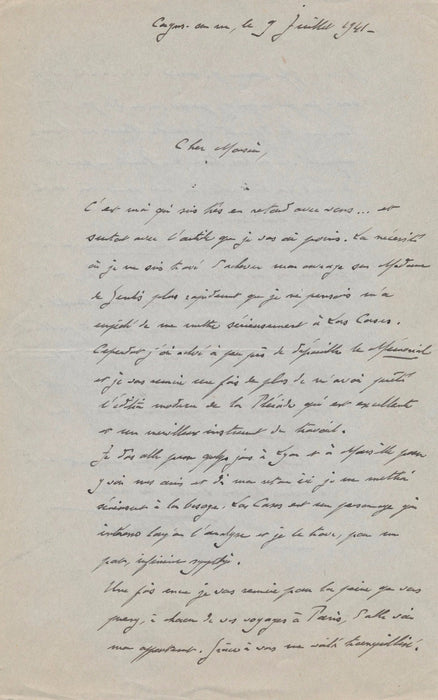 Cagnes-sur-mer, le 9 Juillet 1941-
Cher Monsieur,
C'est moi qui suis très en retard avec vous... et
surtout avec l'article que je vous ai promis. La nécessité
où je me suis trouvé d'achever mon ouvrage sur Madame
de Genlis plus rapidement que je ne pensais m'a
empêché de me mettre sérieusement à Las Cases.
Cependant j'ai achevé à peu près de dépouiller le Mémorial
et je vous remercie une fois de plus de m'avoir prêté
l'édition moderne de la Pléiade qui est excellente
et un merveilleux instrument de travail.
Je dois aller passer quelques jours à Lyon et à Marseille pour
y voir mes amis et dès mon retour ici je me mettrai
sérieusement à la besogne. Las Cases est un personnage qui
intéresse l'analyse et je le trouve, pour un
infiniment
Une fois encore je vous remercie pour la peine que vous
prenez, à chacun de vos voyages à Paris, d'aller voir
mon appartement. Grâce à vous me voilà tranquillisé.